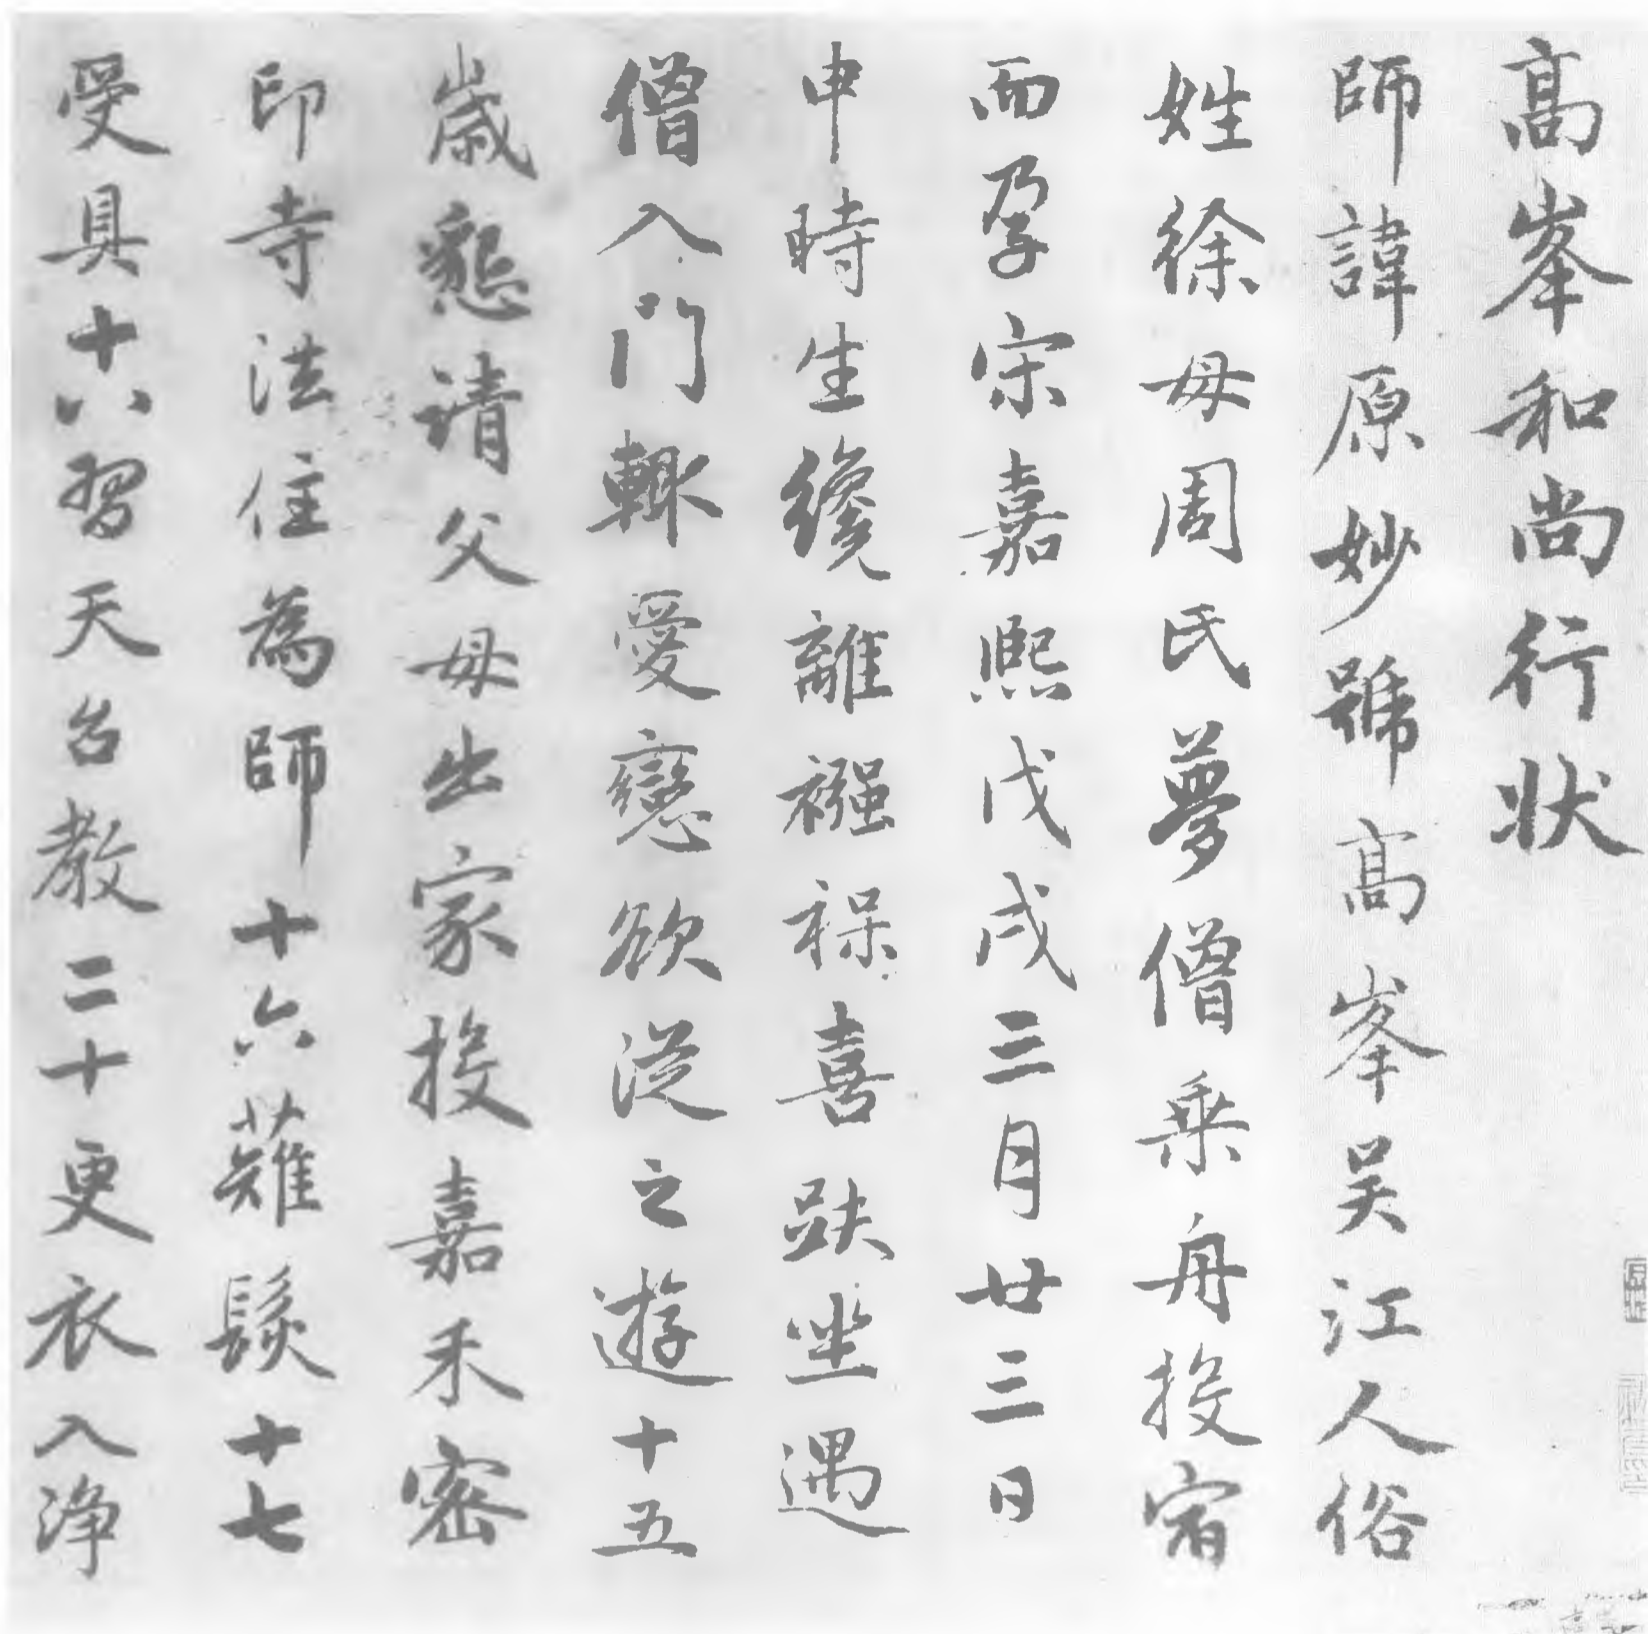 高峯和尚行状
師諱原妙號高峯吴江人俗
姓徐母周氏夢僧乘舟投宿
而孕宋嘉熙戊戌三月廿三日
申時生纔離襁褓喜趺坐遇
僧入門輙愛戀欲從之遊十五
歳懇请父母出家投嘉禾密
印寺法住為師十六薙髮十七
受具十八習天台教二十更衣入淨